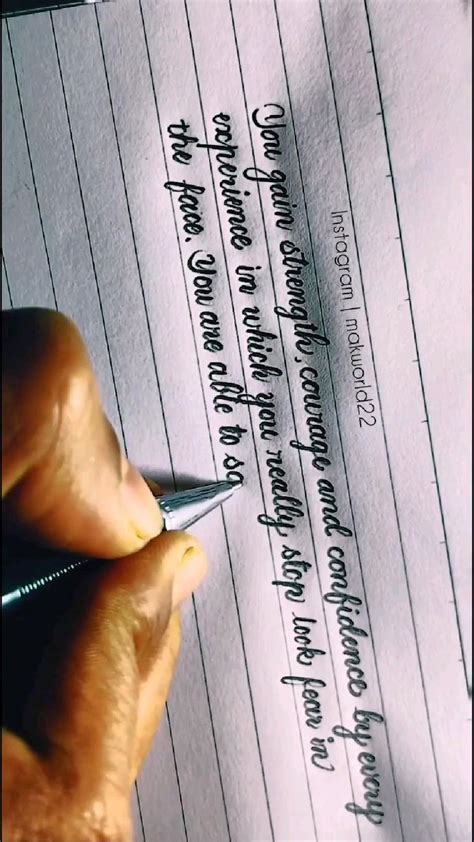 Instagram | makworld22
You gain strength, courage and confidence by every
experience in which you really stop look fear in
the face. You are able to sa